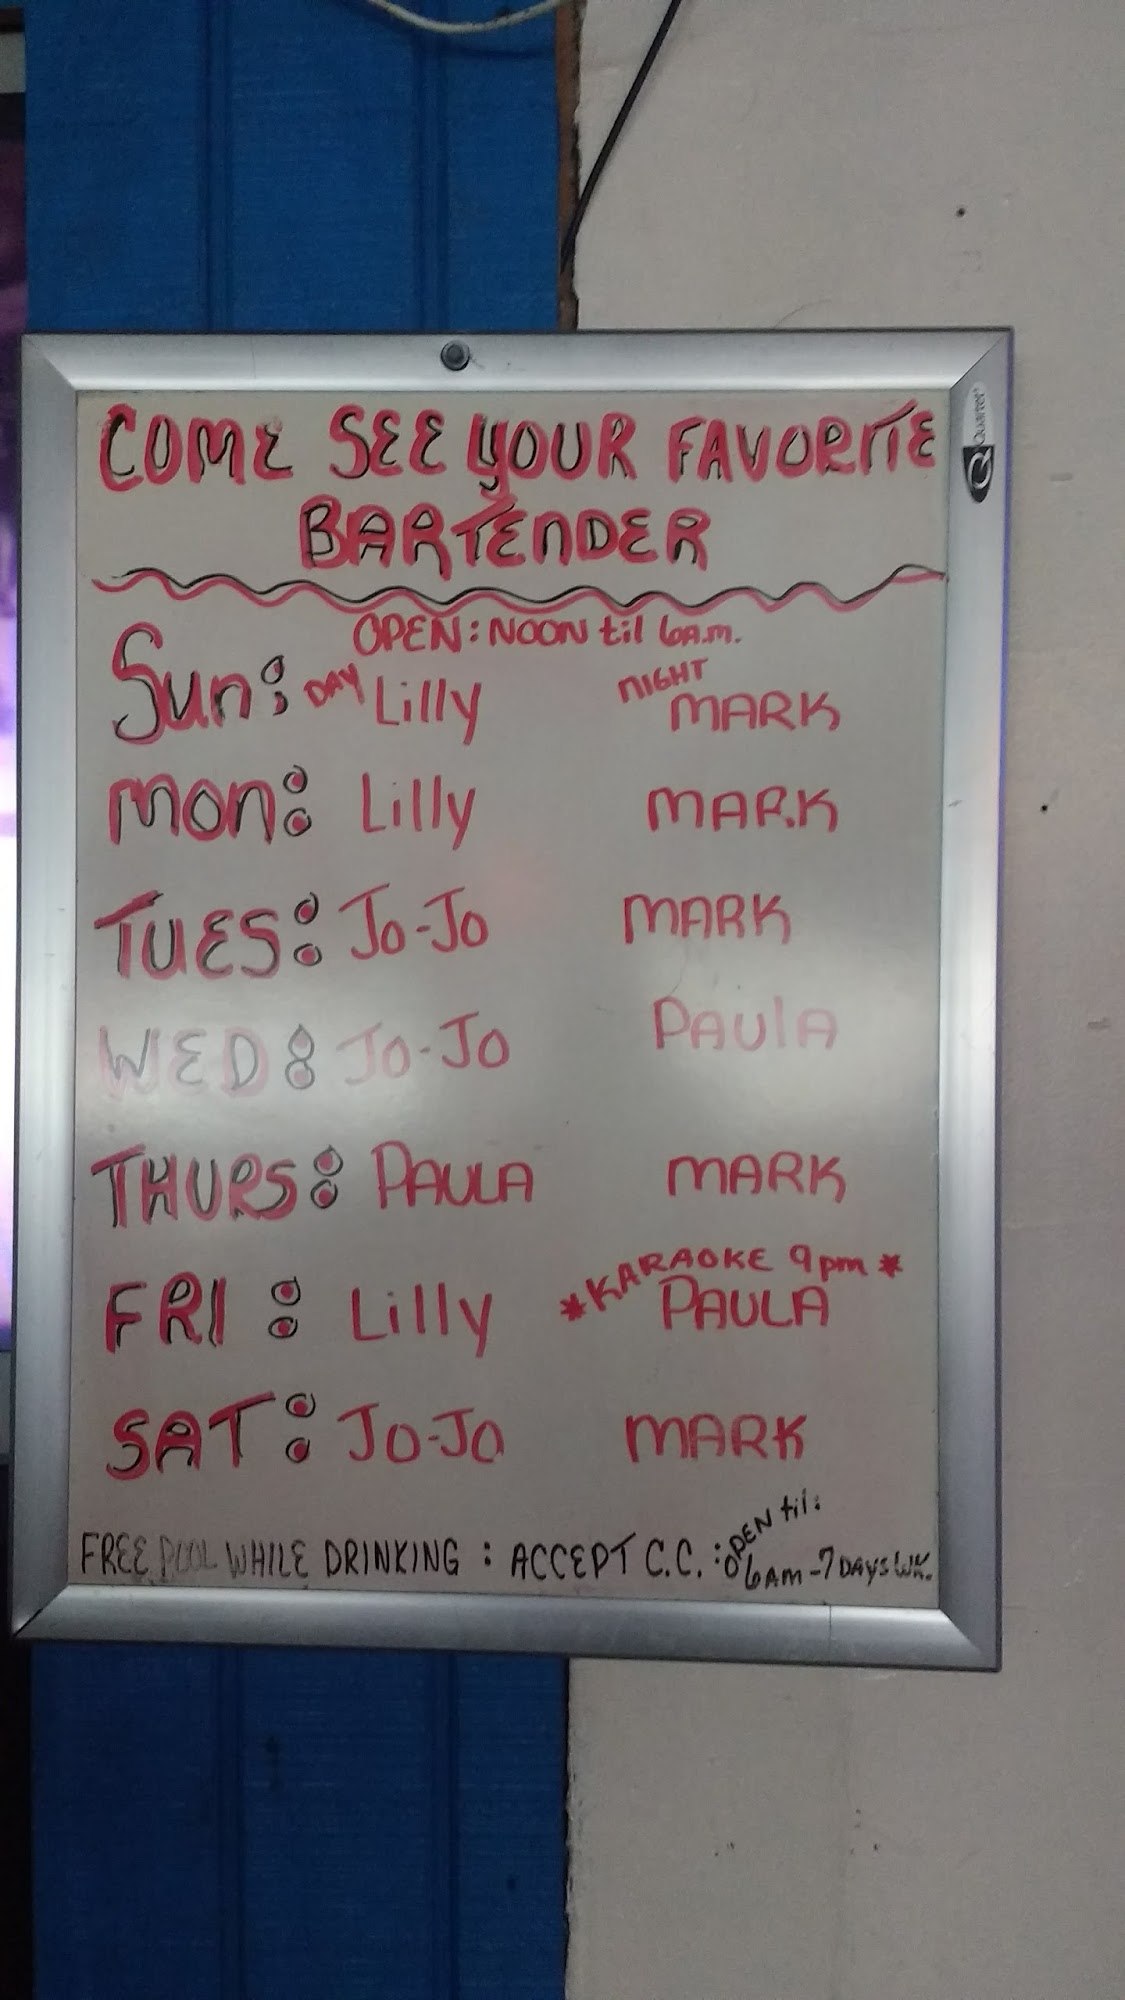 COME SEE YOUR FAVORITE
BARTENDER
OPEN: NOON til 6A.m.
Sun: DAY Lilly NIGHT MARK
MON: Lilly MARK
TUES: Jo-Jo MARK
WED: Jo-Jo PAUlA
THURS: PAULA MARK
*KARAOKE 9pm*
FRI: Lilly PAULA
SAT: Jo-Jo MARK
FREE POOL WHILE DRINKING: ACCEPT C.C.: OPEN til:
6AM-7DAYS WK.
Quartet